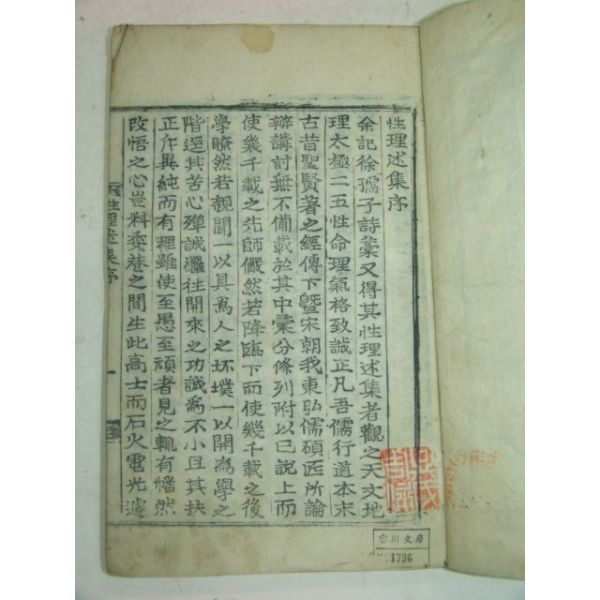 性理述集序
余記徐孺子詩藁又得其性理述集者觀之天文地
理太極二五性命理氣格致誠正凡吾儒行道本末
古昔聖賢著之經傳下曁宋朝我東弘儒碩匠所論
辨講討無不備載於其中彙分條列附以已說上而
使幾千載之先師儼然若降臨下而使幾千載之後
學瞭然若親聞一以具爲人之坏墣一以開爲學之
階逕其苦心殫誠繼往開來之功誠爲不小且其扶
正斥異純而有理雖使至愚至頑者見之輒有幡然
改悟之心豈料委巷之間生此高士而石火電光遽
性理述集序
一
1796